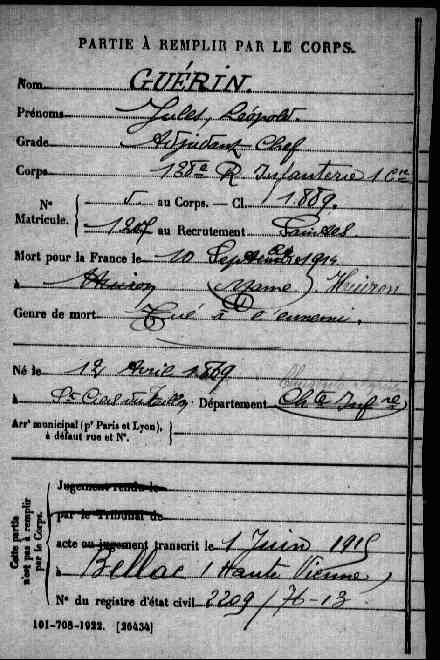 PARTIE À REMPLIR PAR LE CORPS.
Nom GUÉRIN.
Prénoms Jules, Léopold.
Grade Adjudant Chef
Corps 138e R Infanterie 1 Cie
N° Matricule. { au Corps. — Cl. 1889.
1207 au Recrutement Saintes
Mort pour la France le 10 Septembre 1914
à Huiron (Marne) Huiron
Genre de mort Tué à l'ennemi.
Né le 12 Avril 1869
à St Ciers du Taillon Département Chte Infre
Arrt municipal (pr Paris et Lyon), à défaut rue et N°. }
Cette partie n'est pas à remplir par le Corps.
Jugement rendu le
par le Tribunal de
acte ou jugement transcrit le 1 Juin 1915
à Bellac (Haute Vienne)
N° du registre d'état civil 2209/76-13
101-708-1922. [26434]